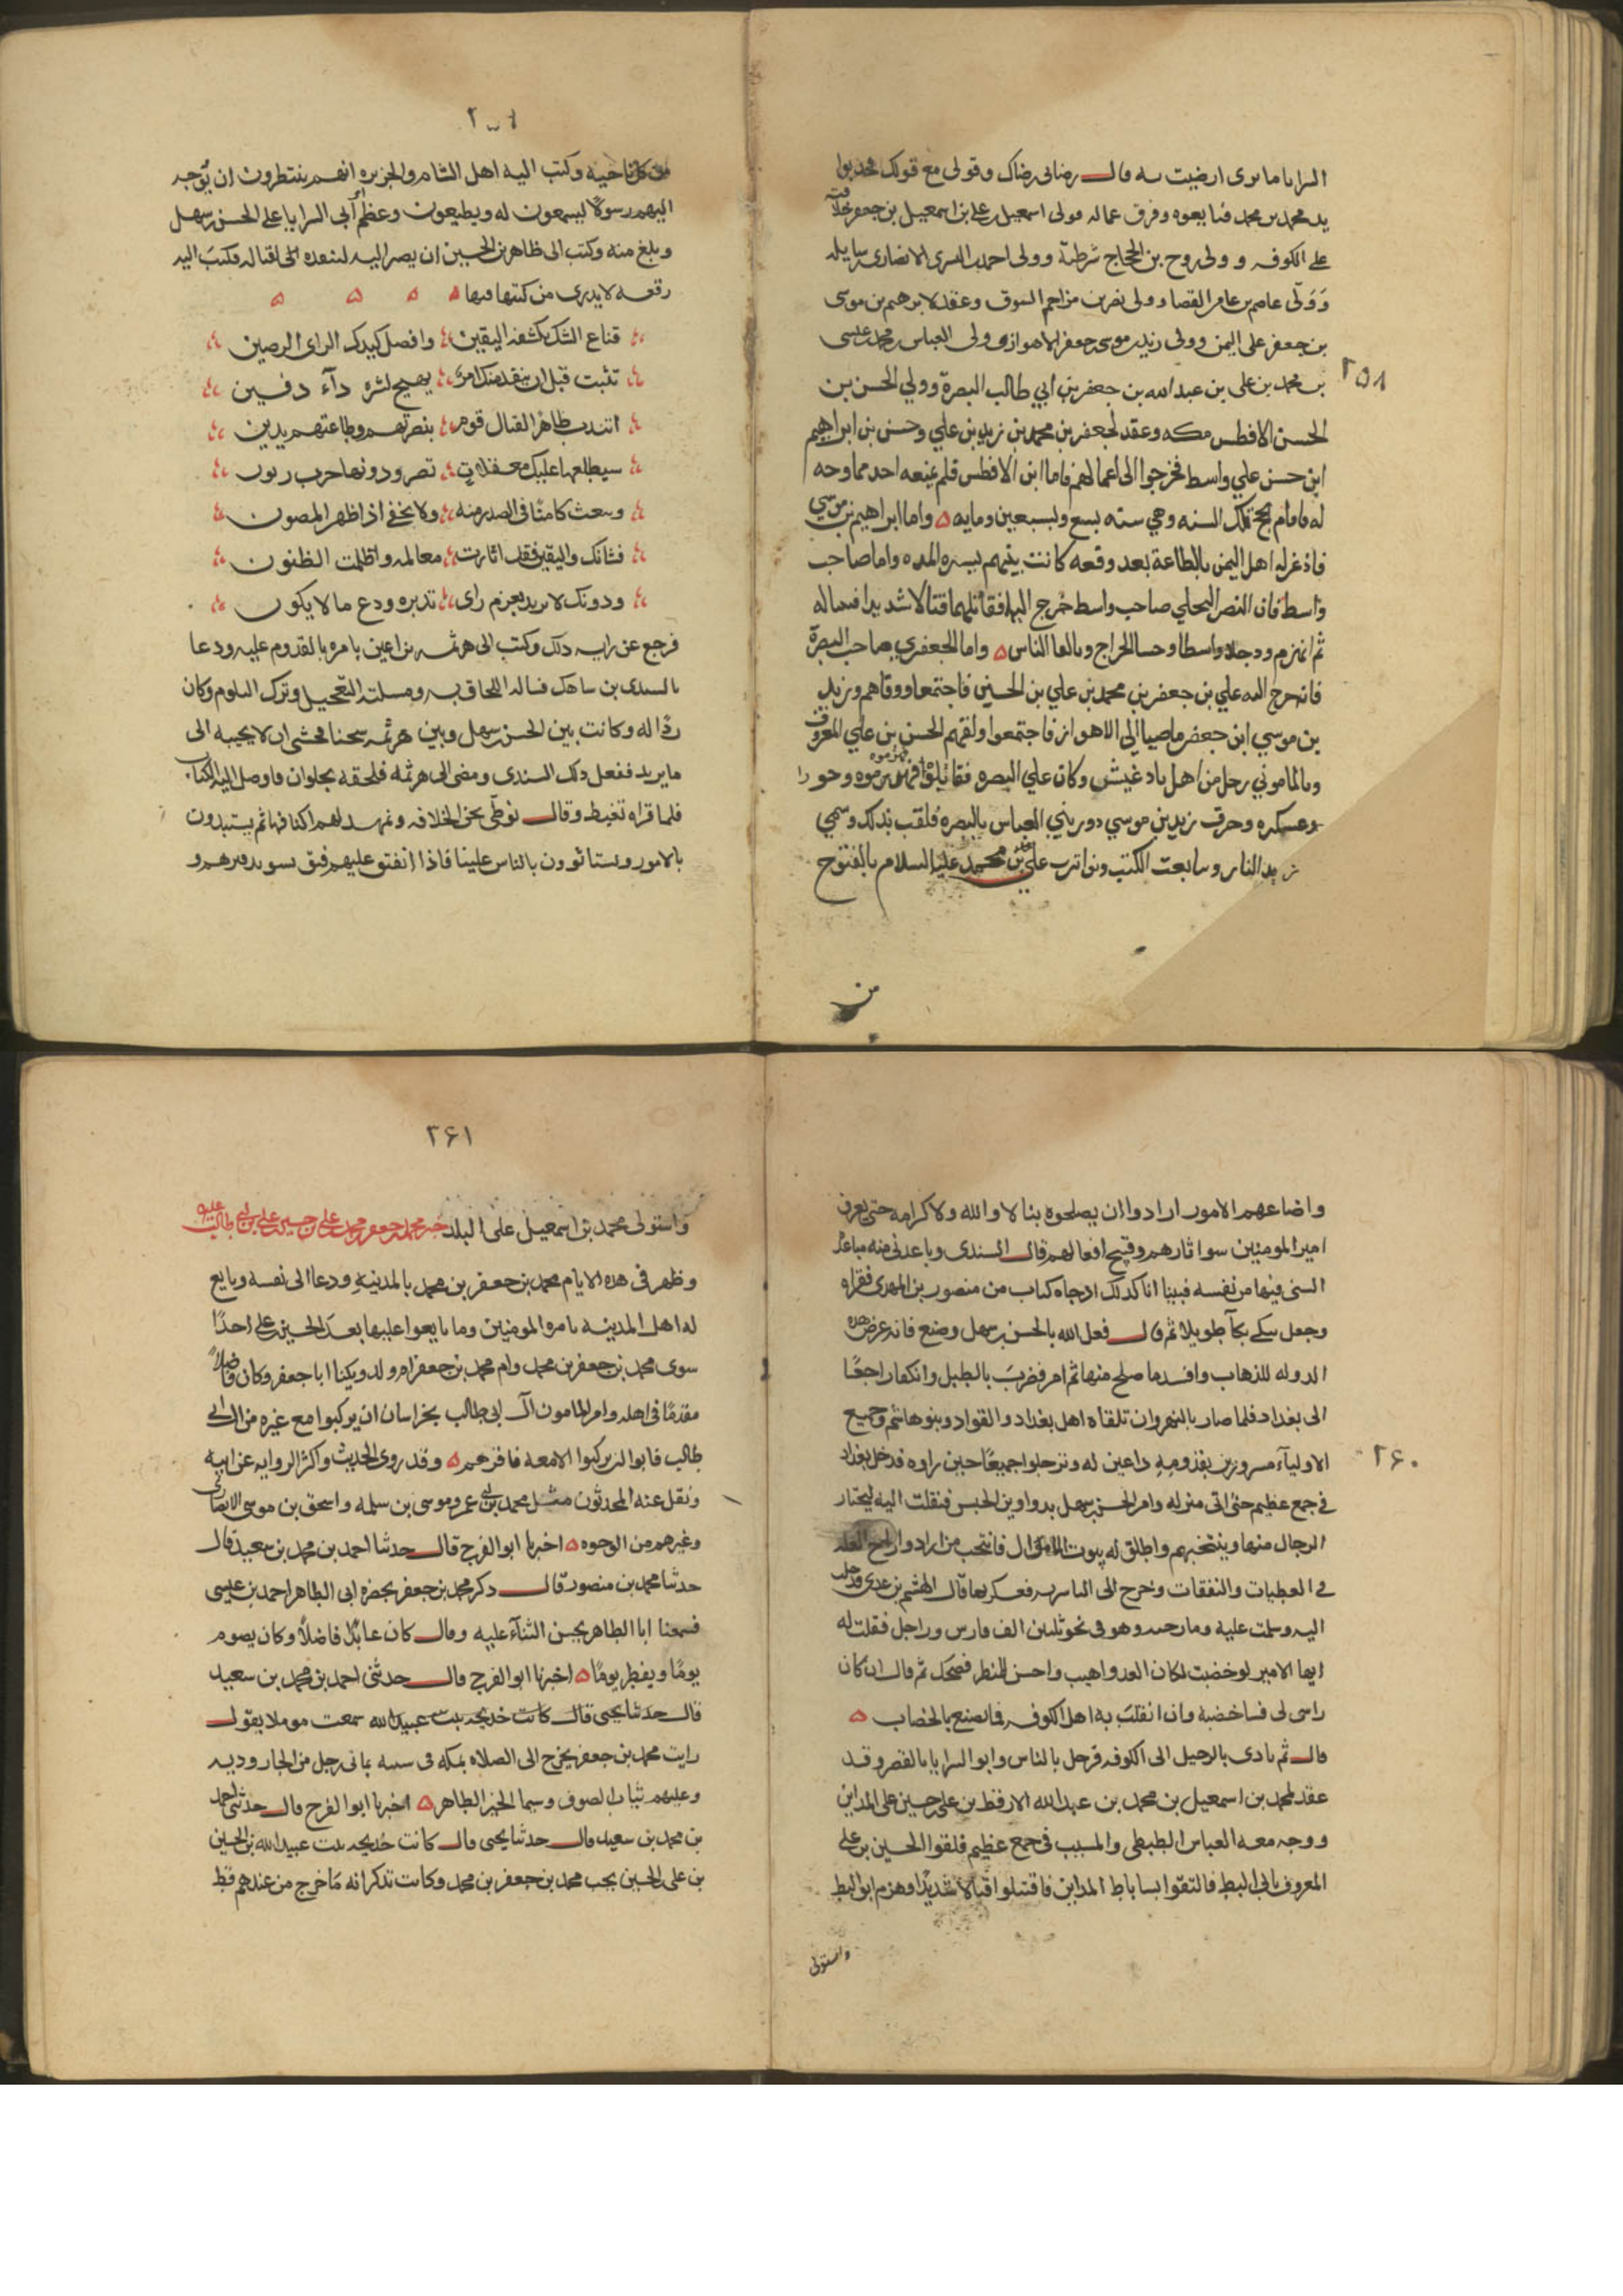 السرايا ما ترى ارضيت به قال رضائى رضاك وقولى مع قولك فجذبوا
يد محمد بن محمد فبايعوه وفرق عماله فولى اسمعيل بن على بن اسمعيل بن جعفر خلافته
على الكوفه و ولى روح بن الحجاج شرطته وولى احمد بن السرى الانصارى رسايله
وَوَلّى عاصم بن عامر القضا وولى نصر بن مزاحم السوق وعقد لابرهيم بن موسى
بن جعفر على اليمن وولى زيد بن موسى بن جعفر الاهواز وولى العباس بن محمد بن عيسى
٢٥٨
بن محمد بن على بن عبدالله بن جعفر بن ابي طالب البصرة وولي الحسن بن
الحسن الافطس مكه وعقد لجعفر بن محمد بن زيد بن علي وحسن بن ابراهيم
ابن حسن علي واسط فخرجوا الى اعمالهم فاما ابن الافطس فلم يمنعه احد مما وجه
له فاقام بحج تلك السنه وهي سنه تسع وتسعين ومايه ٥ واما ابراهيم بن موسي
فاذعن له اهل اليمن بالطاعة بعد وقعه كانت بينهم يسيره المده واما صاحب
واسط فان النصر البجلي صاحب واسط خرج اليهما فقاتلهما قتالا شديدا فثبتا له
ثم انهزم ودخلا واسطا وجبيا الخراج وتالفا الناس ٥ واما الجعفري صاحب البصرة
فانه خرج اليه علي بن جعفر بن محمد بن علي بن الحسين فاجتمعا ووافاهم زيد
بن موسي ابن جعفر ماضيا الى الاهواز فاجتمعوا ولقيهم الحسن بن علي المعروف
بالماموني رجل من اهل بادغيش وكان علي البصره فقاتلوه فهزموه وحووا
عسكره وحرق زيد بن موسي دور بني العباس بالبصره فلقب بذلك وسمي
زيد النار وتتابعت الكتب وتواترت على محمد بن محمد عليه السلام بالفتوح
من
من كل ناحيه وكتب اليه اهل الشام والجزيره انهم ينتظرون ان يوجه
اليهم رسولاً ليسمعون له ويطيعون وعظم أمر أبى السرايا على الحسن بن سهل
وبلغ منه وكتب الى طاهر بن الحسين ان يصير اليه لينفذه الى قتاله فكتبَ اليه
رقعه لا يدرى من كتبها فيها ٥ ٥ ٥ ٥
قناع الشك يكشفه اليقين وافضل كيدك الراى الرصين
تثبت قبل ان ينفذ منك امر يهيج لشره دآء دفين
اتندب طاهرا لقتال قوم بنصرتهم وطاعتهم يدين
سيطلعها عليك معقلات تصر ودونها حرب زبون
ويبعث كامنًا فى الصدر منه ولا يخفى اذا ظهر المصون
فشانك واليقين فقد اثارت معالمه واظلمت الظنون
ودونك لا تريد بعزم راى تدبره ودع ما لا يكون
فرجع عن رايه ذلك وكتب الى هرثمه بن اعين يامره بالقدوم عليه ودعا
بالسندى بن ساهك فساله اللحاق به ومسلته التعجيل وترك التلوم وكان
ردًا له وكانت بين الحسن بن سهل وبين هرثمه شحنا فخشى ان لا يجيبه الى
ما يريد ففعل ذلك السندى ومضى الى هرثمه فلحقه بحلوان فاوصل اليه الكتاب
فلما قراه تغيظ وقال نوطّى نحن الخلافه ونمهد لهم اكنافها ثم يستبدون
بالامور ويستاثرون بالناس علينا فاذا انفتق عليهم فتق بسوء تدبيرهم و
واضاعهم الامور ارادوا ان يصلحوه بنا لا والله ولا كرامه حتى يعرف
امير المومنين سوا ثارهم وقبيح افعالهم قال السندى وباعدنى منه مباعدة
ايسنى فيها من نفسه فبينا انا كذلك اذ جاه كتاب من منصور بن المهدى فقراه
وجعل يبكى بكآ طويلا ثم قال فعل الله بالحسن بن سهل وصنع فانه عرض هذه
الدوله للذهاب وافسد ما صلح منها ثم امر فضربَ بالطبل وانكفا راجعًا
الى بغداد فلما صار بالنهروان تلقاه اهل بغداد والقواد وبنو هاشم وجميع
٢۶٠
الاوليآء مسرورين بقدومِهِ داعين له ونزجلوا جميعًا حين راوه فدخل بغداد
فى جمع عظيم حتى اتى منزله وامر الحسن بن سهل بدواوين الجيش فنقلت اليه ليختار
الرجال منها وينتخبهم واطلق له بيوت الاموال فانتخب من اراد وازاح العلة
فى العطيات والنفقات وخرج الى الياسريه فعسكر بها قال الهيثم بن عدى فدخلت
اليه وسلمت عليه ومازحته وهو فى نحو ثلثين الف فارس وراجل فقلت له
ايها الامير لو خضبت لكان العدو اهيب واحسن للمنظر فضحك ثم قال ان كان
راسى لى فساخضبه وان انقلبَ به اهل الكوفه فما يصنع بالخضاب ٥
قال ثم نادى بالرحيل الى الكوفه فرحل بالناس وابو السرايا بالقصر وقد
عقد لمحمد بن اسمعيل بن محمد بن عبدالله الارقط بن على بن حسين على المداين
ووجه معه العباس الطبطبى والمسيب فى جمع عظيم فلقوا الحسين بن على
المعروف بابى البط فالتقوا بساباط المداين فاقتتلوا قتالا شديدًا وهزم ابو البط
واستولى
٢۶١
واستولى محمد بن اسمعيل على البلد خبر محمد بن جعفر بن محمد بن على بن حسين بن على بن ابى طالب عليه
وظهر فى هذه الايام محمد بن جعفر بن محمد بالمدينهِ ودعا الى نفسه وبايع
له اهل المدينه بامره المومنين وما بايعوا عليها بعد الحسين بن على احدًا
سوى محمد بن جعفر بن محمد وام محمد بن جعفر ام ولد ويكنا ابا جعفر وكان فاضلاً
مقدمًا فى اهله وامر المامون آل ابى طالب بخراسان ان يركبوا مع غيره من ال ابى
طالب فابوا ان يركبوا الا معه فاقرهم ٥ وقد روى الحديث واكثر الروايه عن ابيه
ونقل عنه المحدثون مثل محمد بن ابى عمر وموسى بن سلمه واسحق بن موسى الانصارى
وغيرهم من الوجوه ٥ اخبرنا ابو الفرج قال حدثنا احمد بن محمد بن سعيد قال
حدثنا محمد بن منصور قال ذكر محمد بن جعفر بحضره ابى الطاهر احمد بن عيسى
فسمعنا ابا الطاهر يحسن الثنآء عليه وقال كان عابدًا فاضلاً وكان يصوم
يومًا ويفطر يومًا ٥ اخبرنا ابو الفرج قال حدثنى احمد بن محمد بن سعيد
قال حدثنا يحيى قال كانت خديجه بنت عبيدالله سمعت موملا يقول
رايت محمد بن جعفر يخرج الى الصلاه بمكه فى سنه بمائى رجل من الجاروديه
وعليهم ثياب الصوف وسيما الخير الظاهر ٥ اخبرنا ابو الفرج قال حدثنى احمد
بن محمد بن سعيد قال حدثنا يحيى قال كانت خديجه بنت عبيدالله بن الحسين
بن على الحسين يجب محمد بن جعفر بن محمد وكانت تذكر انه مَا خرج من عندهم قط